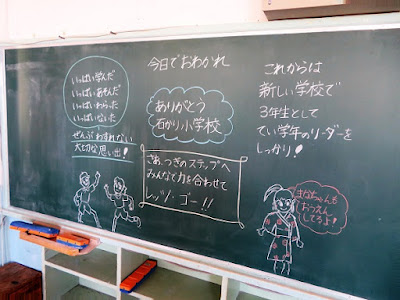 いっぱい学んだ
いっぱいあそんだ
いっぱいわらった
いっぱいないた
ぜんぶわすれない
大切な思い出!
今日でおわかれ
ありがとう
石かり小学校
さあ、つぎのステップへ
みんなで力を合わせて
レッツ・ゴー!!
これからは
新しい学校で
3年生として
てい学年のリーダーを
しっかり!
きなちゃんも
おうえん
してるよ♪